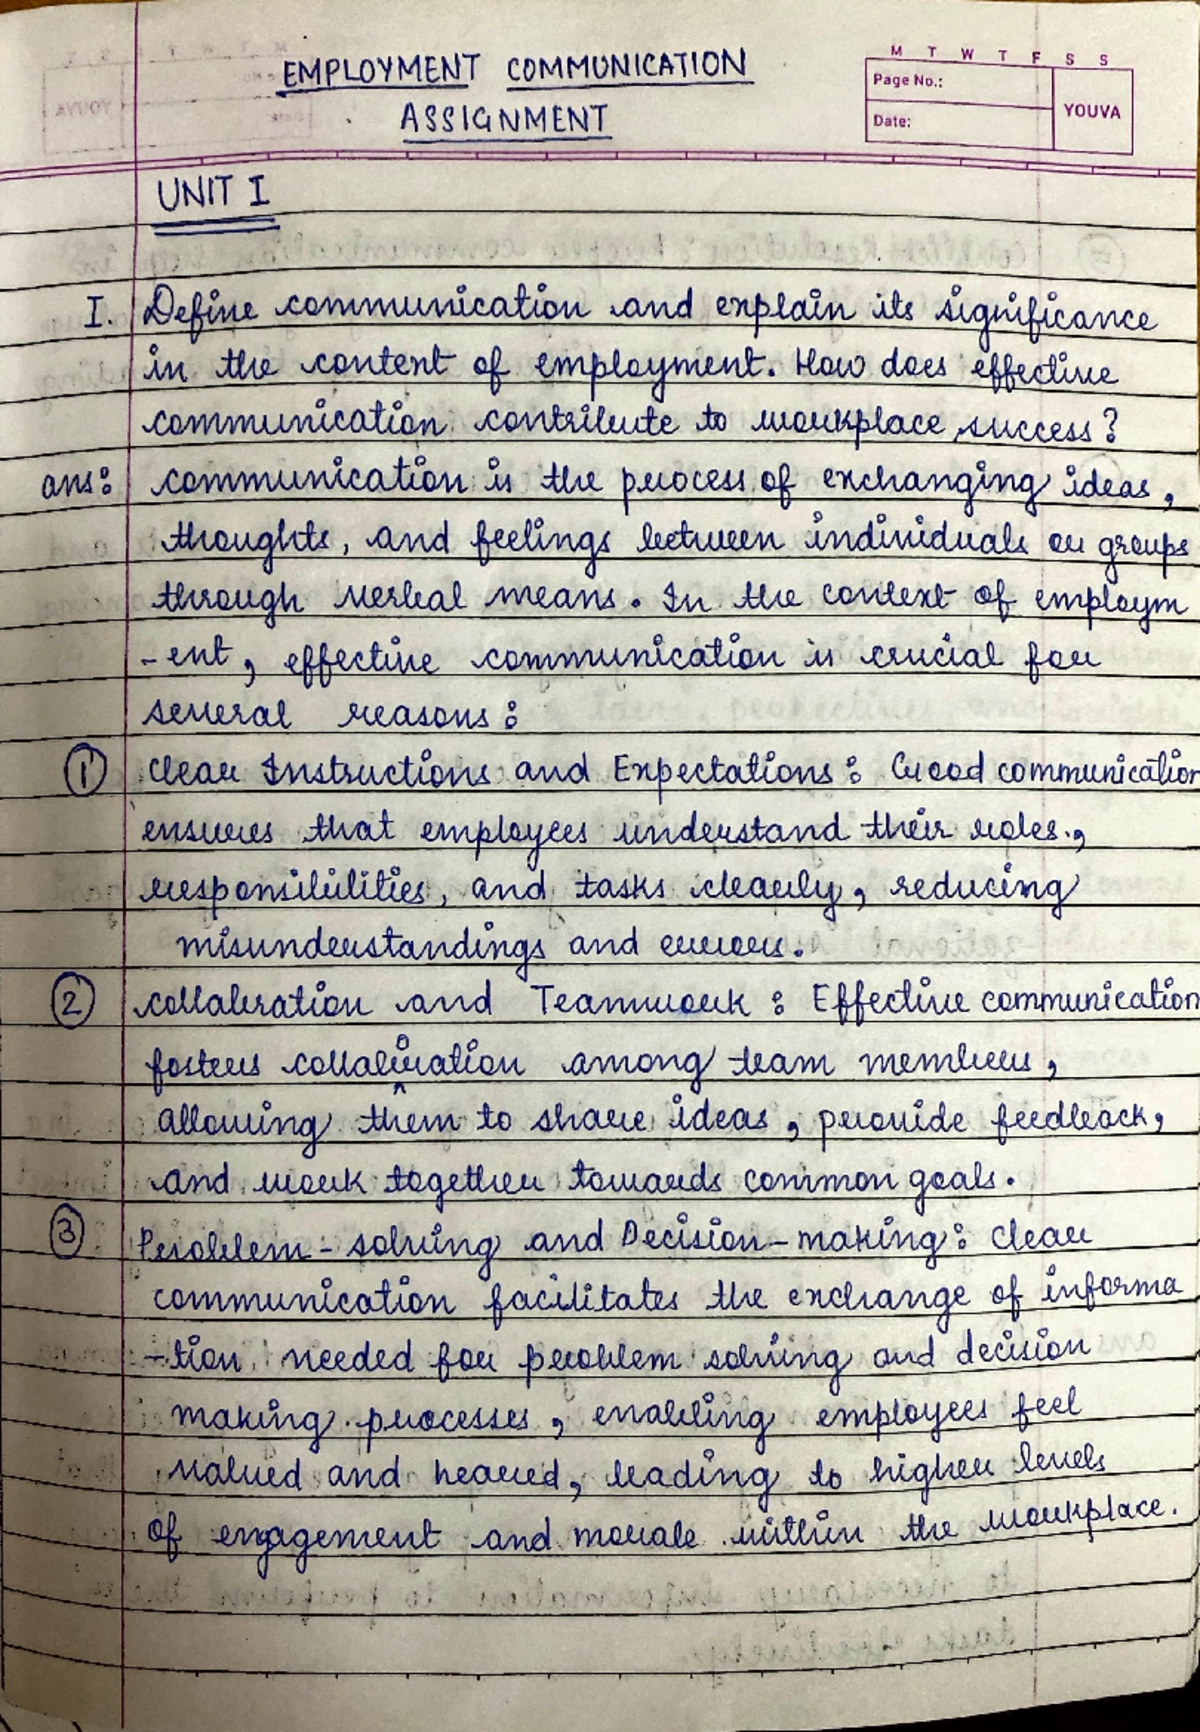 M T W T F S S
EMPLOYMENT COMMUNICATION
Page No.:
YOUVA
ASSIGNMENT
Date:
UNIT I
I. Define communication and explain its significance
in the content of employment. How does effective
communication contribute to workplace success?
ans: communication is the process of exchanging ideas,
thoughts, and feelings between individuals or groups
through verbal means. In the context of employm
-ent, effective communication is crucial for
several reasons:
① clear Instructions and Expectations: Good communication
ensures that employees understand their roles,
responsibilities, and tasks clearly, reducing
misunderstandings and errors.
② collabration and Teamwork: Effective communication
fosters collaboration among team members,
allowing them to share ideas, provide feedback,
and work together towards common goals.
③ Problem-solving and Decision-making: clear
communication facilitates the exchange of informa
-tion needed for problem solving and decision
making processes, enabling employees feel
valued and heared, leading to higher levels
of engagement and morale within the workplace.